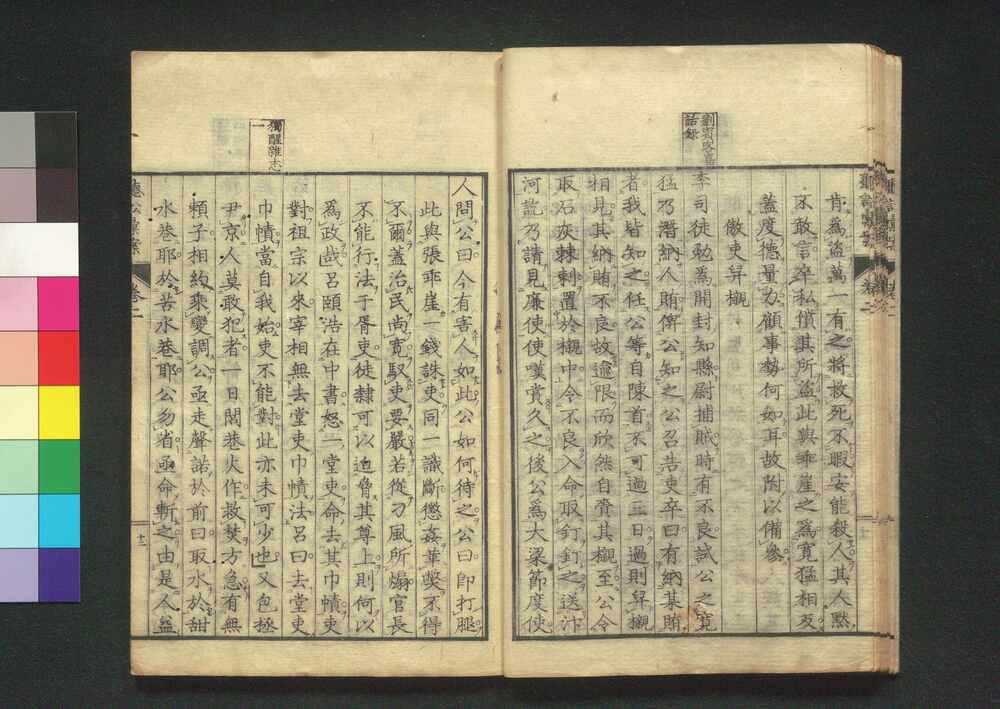 肯爲盜萬一有之將救死不暇安能殺人其人黙
不敢言卒私償其所盜此與乖崖之爲寬猛相反
蓋度德量力顧事勢何如耳故附以備參
懲吏舁櫬
李司徒勉爲開封知縣尉捕賊時有不良試公之寬
猛乃潛納人賄俾公知之公召告吏卒曰有納某賄
者我皆知之任公等自陳首不可過三日過則舁櫬
相見其納賄不良故逾限而欣然自賫其櫬至公令
取石灰棘刺置於櫬中令不良入命取釘釘之送汴
河訖乃請見廉使使嘆賞久之後公爲大梁節度使
話錄
人問公曰今有害人如此公如何待之公曰卽打腿
此與張乖崖一錢誅吏同一識斷懲姦革獘不得
不爾蓋治民尚寛馭吏要嚴若從刁風所煽官長
不能行法于胥吏徒隸可以迫脅其尊上則何以
爲政哉呂頤浩在中書怒一堂吏命去其巾幘吏
對祖宗以來宰相無去堂吏巾幘法呂曰去堂吏
巾幘當自我始吏不能對此亦未可少也又包拯
尹京人莫敢犯者一日閭巷火作救焚方急有無
頼子相約乘變調公亟走聲諾於前曰取水於甜
水巷耶於苦水巷耶公勿省亟命斬之由是人益
獨醒雜志
一
卷二
十三